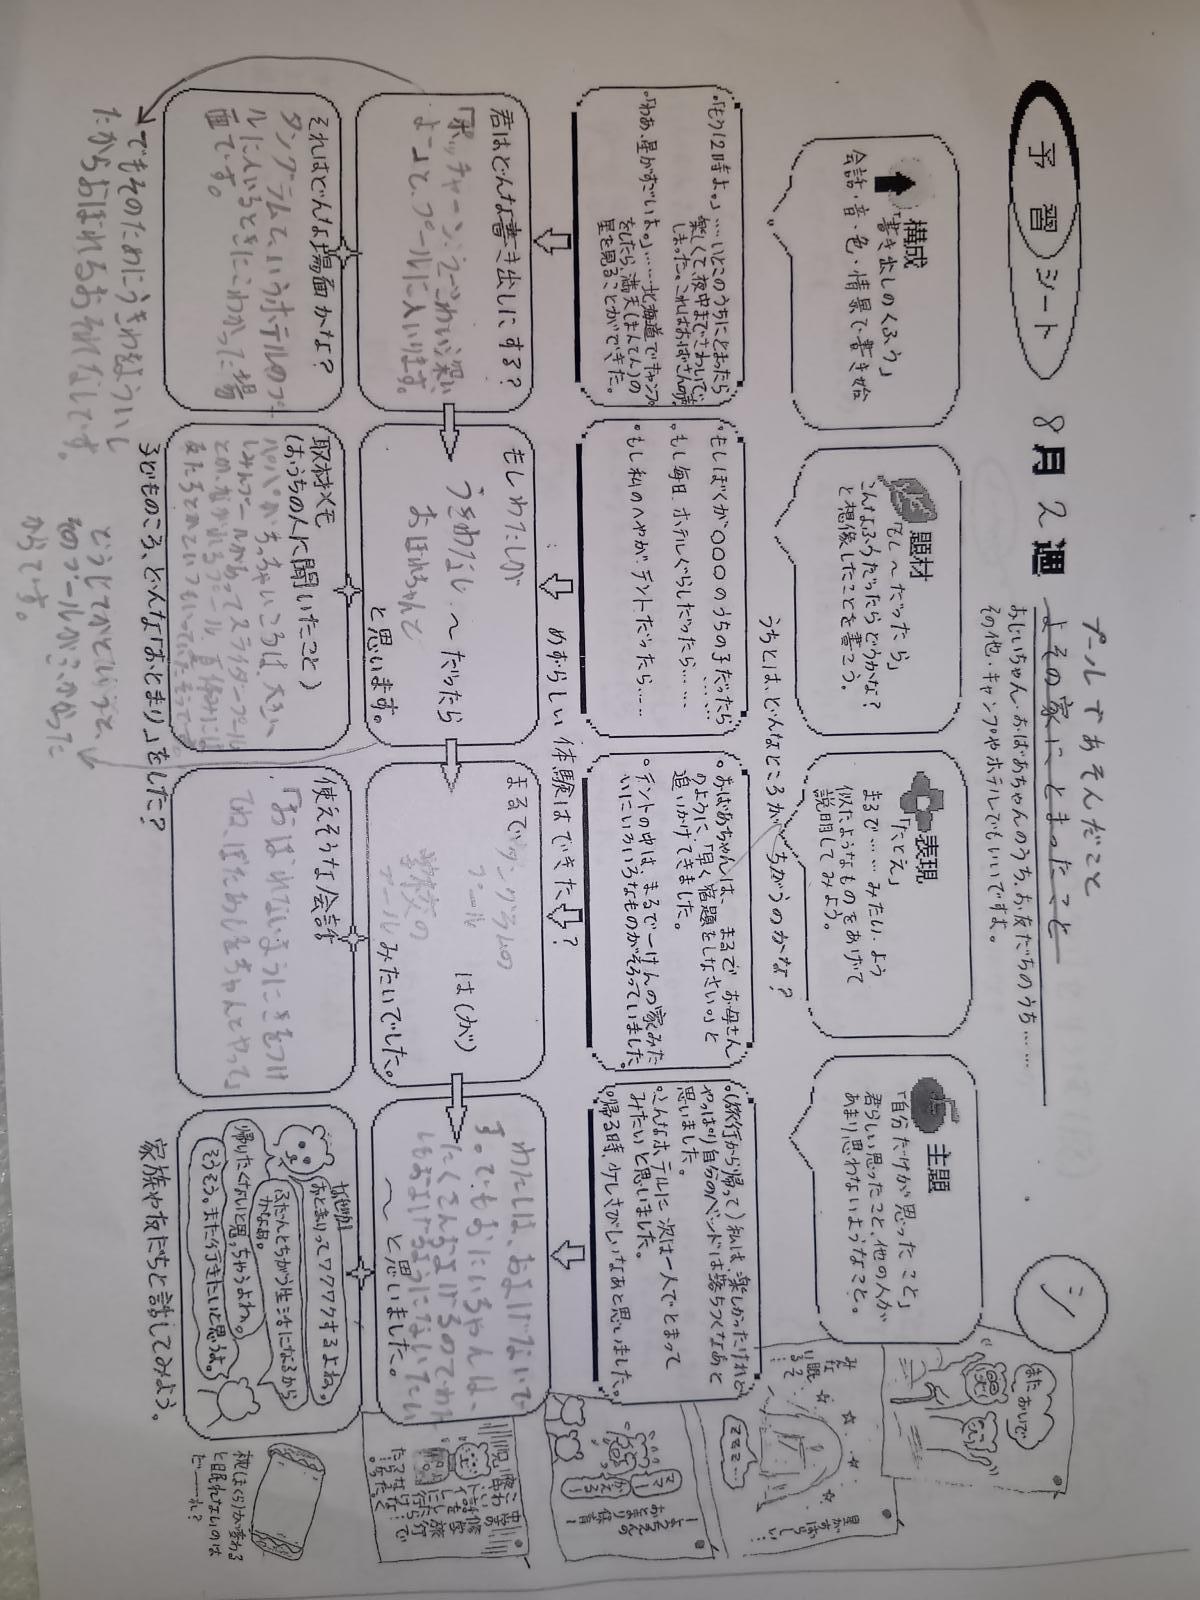 予習シート 8月2週
プールであそんだこと
よその家にとまったこと
おじいちゃん・おばあちゃんのうち、お友だちのうち……
その他・キャンプやホテルでもいいですよ。
シ
構成
「書き出しのくふう」
会話・音・色・情景で書き始
題材
「もし〜だったら」
こんなふうだったらどうかな?
と想像したことを書こう。
表現
「たとえ」
まるで……みたい・よう
似たようなものをあげて
説明してみよう。
主題
「自分だけが思ったこと」
君らしい思ったこと、他の人が
あまり思わないようなこと。
うちとは、どんなところがちがうのかな?
。「もう12時よ。」……いとこのうちにとまったら
楽しくて、夜中までさわいで
しまった。これはおばさんの声
。「わあ、星がすごいよ。」……北海道でキャンプ
をしたら、満天(まんてん)の
星を見ることができた。
。もしぼくが〇〇〇のうちの子だったら……
。もし毎日、ホテルぐらしだったら……
。もし私のへやが、テントだったら……
。おばあちゃんは、まるでお母さん
のように、「早く宿題をしなさい。」と
追いかけてきました。
。テントの中は、まるで一けんの家みた
いにいろいろなものがそろっていました。
。(旅行から帰って)私は、楽しかったけれど
やっぱり自分のベッドは落ちつくなあと
思いました。
。こんなホテルに、次は一人でとまって
みたいと思いました。
。帰る時、少しさびしいなあと思いました。
めずらしい体験はできたか?
君はどんな書き出しにする?
「ポッチャーン、うーこわい、深い
よー」と、プールに入いります。
もしわたしが
うきわなし 〜だったら
おぼれちゃんと
と思います。
まるでタングラムの
プール は(が)
学校の
プール みたいでした。
わたしは、およげないで
す。でもおにいちゃんは、
たくさんおよげるのでわた
しもおよげるようになりたい
〜と思いました。
それはどんな場面かな?
タングラムというホテルのプー
ルに入いるときにこわかった場
面です。
取材メモ
(おうちの人に聞いたこと)
パパがちっちゃいころは、大きい
使えそうな会話
「おぼれないようにきをつけ
てね、ばたあしをちゃんとやって」
おとまりってワクワクするよね。
ふだんとちがう生活になるから
かなぁ。
帰りたくないと思っちゃうよね。
そうそう。また行きたいと思うよ。
でもそのためにうきわをよういし
たからおぼれるおそれなしです。
子どものころ、どんな「おとまり」をした?
家族や友だちと話してみよう。
どうしてかというと、
そのプールがふかかった
からです。
またおいで
みんな
眠い
るぞ!
ZZZZ…
星が
すばらしい!
ママー
かえるー
おともだちの
枕(まくら)が変わる
と眠れないのは
だーーれ?